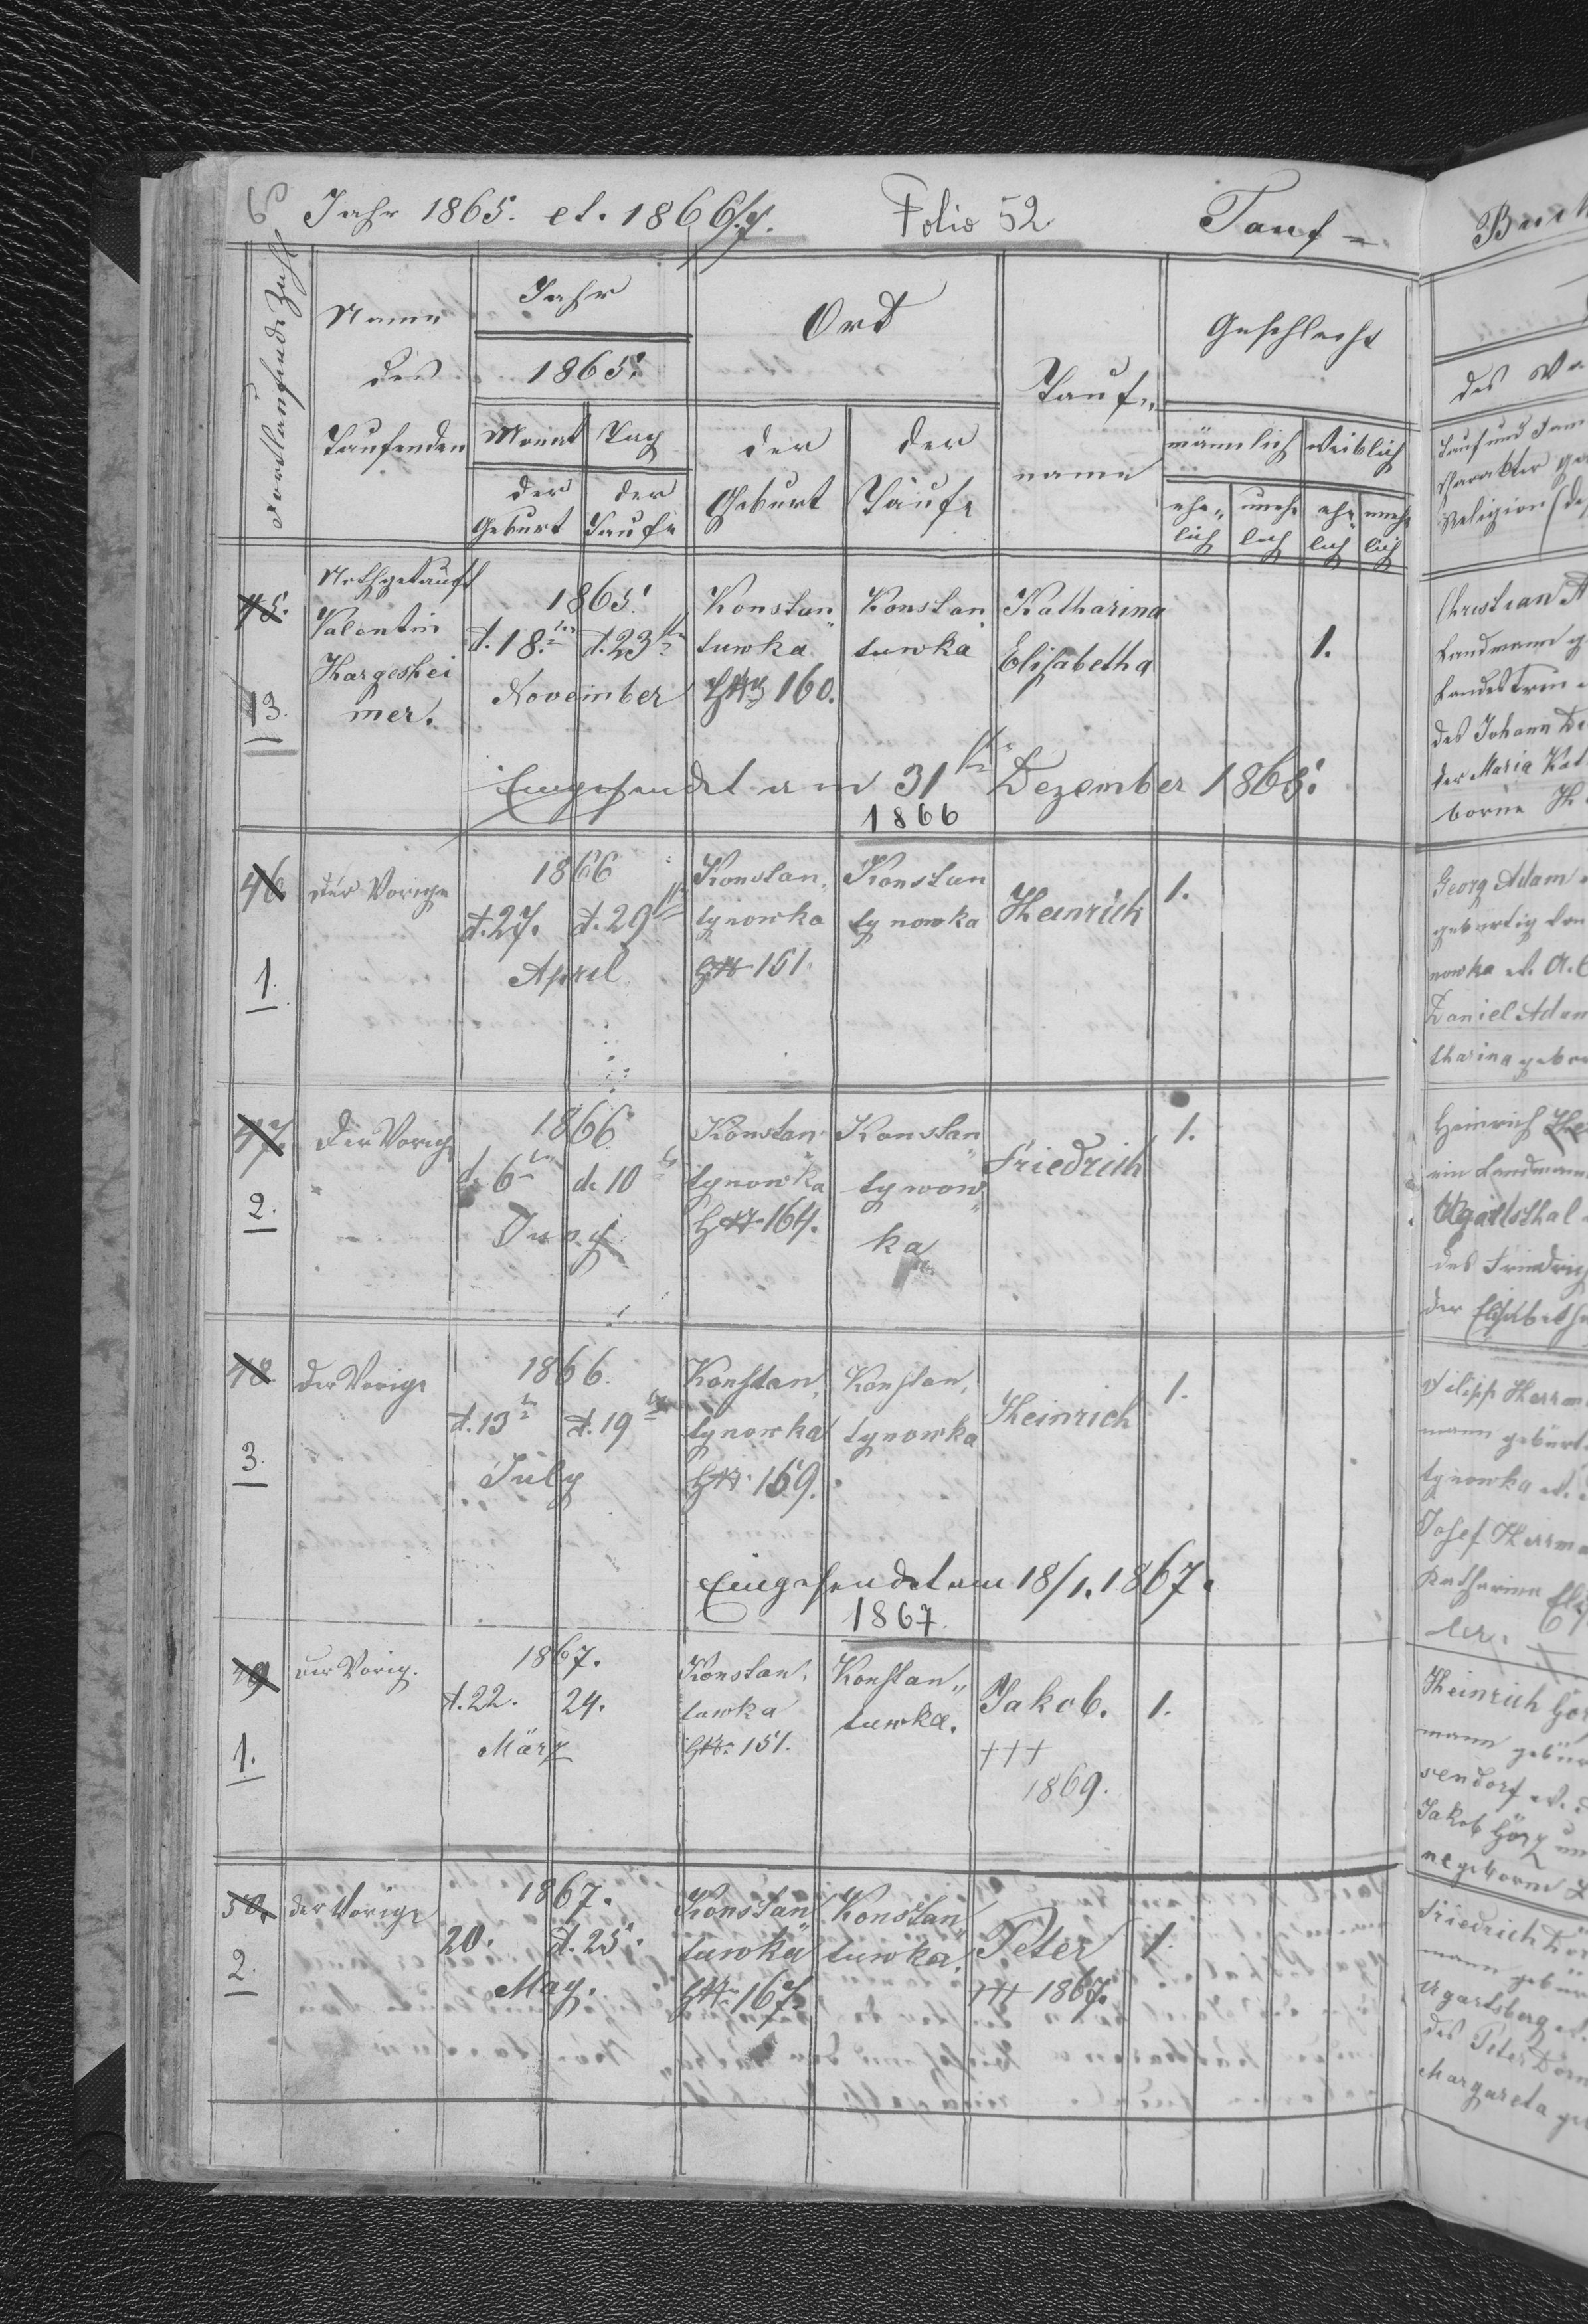 6 Jahr 1865. et. 1866/7. Folio 52. Tauf-
Fortlaufende Zahl
Name des Taufenden
Jahr
1865.
Monat der Geburt
Tag der Taufe
Ort
der Geburt
der Taufe
Tauf„
name
Geschlecht
männlich weiblich
ehe„ lich
unehe lich
ehe„ lich
unehe lich
45.
13.
Nothgetauft
Valentin
Hargeshei
mer.
1865.
d. 18.ten d. 23ten
November
Konstan„
tuwka
HN 160.
Konstan„
tuwka
Katharina
Elisabetha
1.
Eingesendet am 31ten Dezember 1865.
1866
46
1.
der Vorige
1866
d. 27. d. 29ten
April
Konstan„
tynowka
HN 151.
Konstan
tynowka
Heinrich
1.
47.
2.
der Vorige
1866
d. 6ten d. 10ten
Juny
Konstan
tynowka
HN 164.
Konstan„
tynow„
ka
Friedrich
1.
48
3.
der Vorige
1866.
d. 13ten d. 19ten
July
Konstan„
tynowka
HN 159.
Konstan„
tynowka
Heinrich
1.
Eingesendet am 18/1. 1867.
1867.
49
1.
der Vorig.
1867.
d. 22. 24.
März
Konstan„
tuwka
HN. 151.
Konstan„
tuwka.
Jakob.
+++
1869.
1.
50.
2.
der Vorige
1867.
20. d. 25.
May.
Konstan„
tuwka
HN. 167.
Konstan„
tuwka.
Peter
+++ 1867.
1.
Buch
des Va
Tauf und Fam
Charakter
Religion
Christian
Landmann
Landestreu
des Johann
der Maria Kat
borne
Georg Adam
nowka
Daniel Adam
tharina gebor
Heinrich
ein Landmann
Ugartsthal
des Friedrich
der Elisabetha
Filipp Herrm
mann gebürt
tynowka
Josef Herrma
Katharina Eli
ler.
Heinrich Görz
mann gebür
sendorf
Jakob Görz
ne geborne
Friedrich Dör
mann gebür
Ugartsberg
des Peter Dörn
Margareta ge